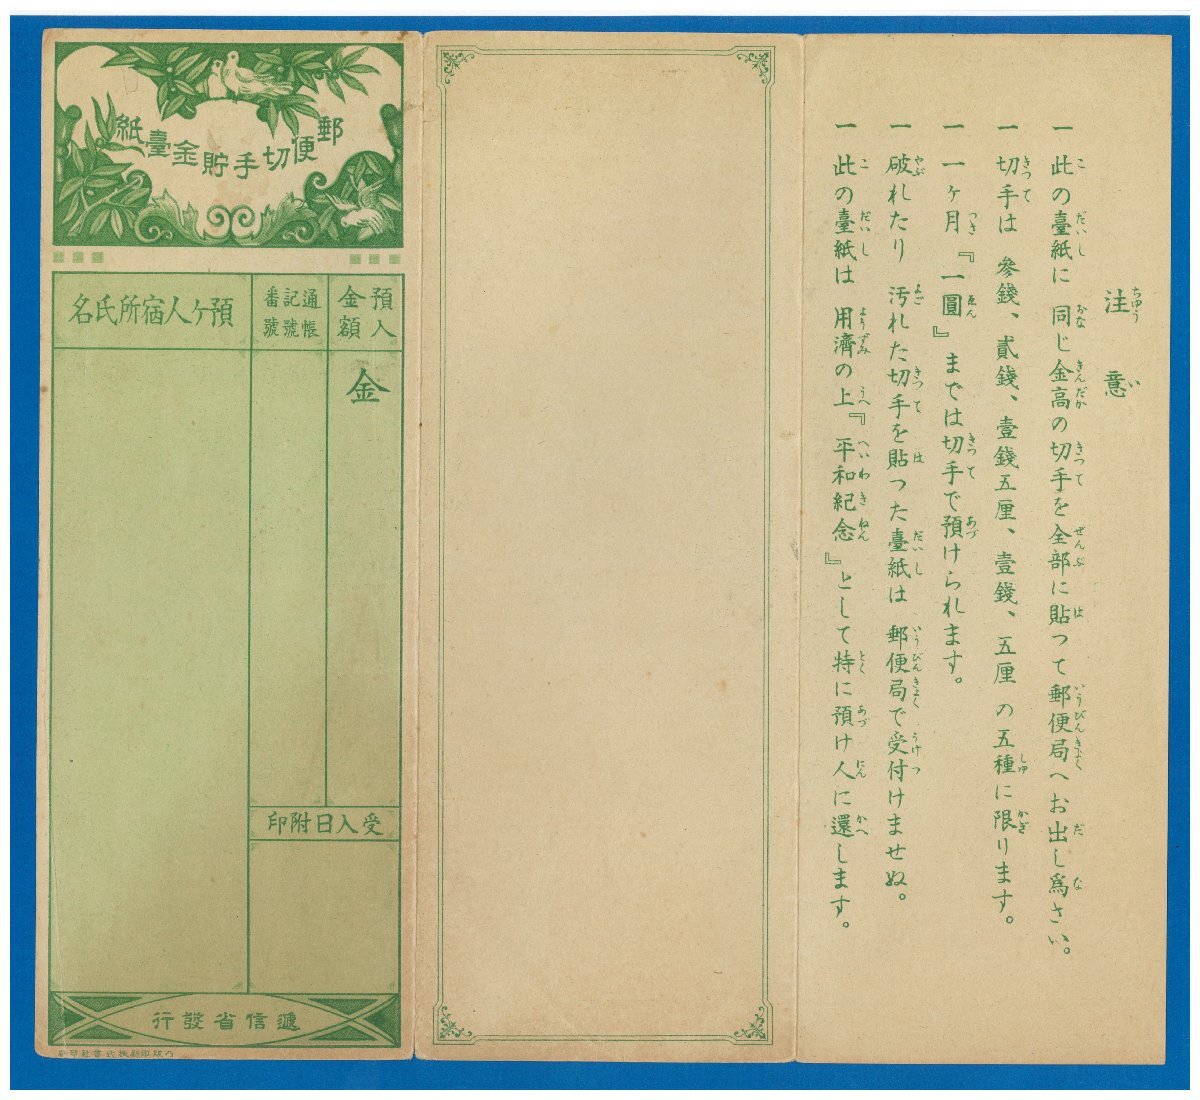 注意
一 此の臺紙に 同じ金高の切手を全部に貼つて郵便局へお出し爲さい。
一 切手は 參錢、貳錢、壹錢五厘、壹錢、五厘 の五種に限ります。
一 一ヶ月『一圓』までは切手で預けられます。
一 破れたり 汚れた切手を貼つた臺紙は 郵便局で受付けませぬ。
一 此の臺紙は 用濟の上『平和紀念』として特に預け人に還します。
郵便切手貯金臺紙
預入金額
通帳記號番號
預ケ人宿所氏名
金
受入日附印
遞信省發行
凸版印刷株式會社